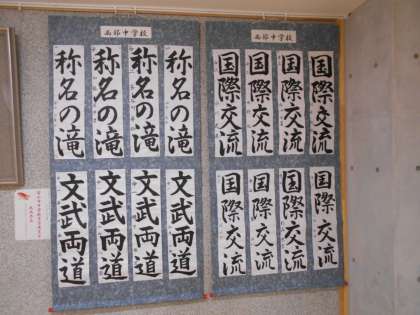 西部中学校
称名の滝
称名の滝
称名の滝
称名の滝
文武両道
文武両道
文武両道
文武両道
西部中学校
国際交流
国際交流
国際交流
国際交流
国際交流
国際交流
国際交流
国際交流